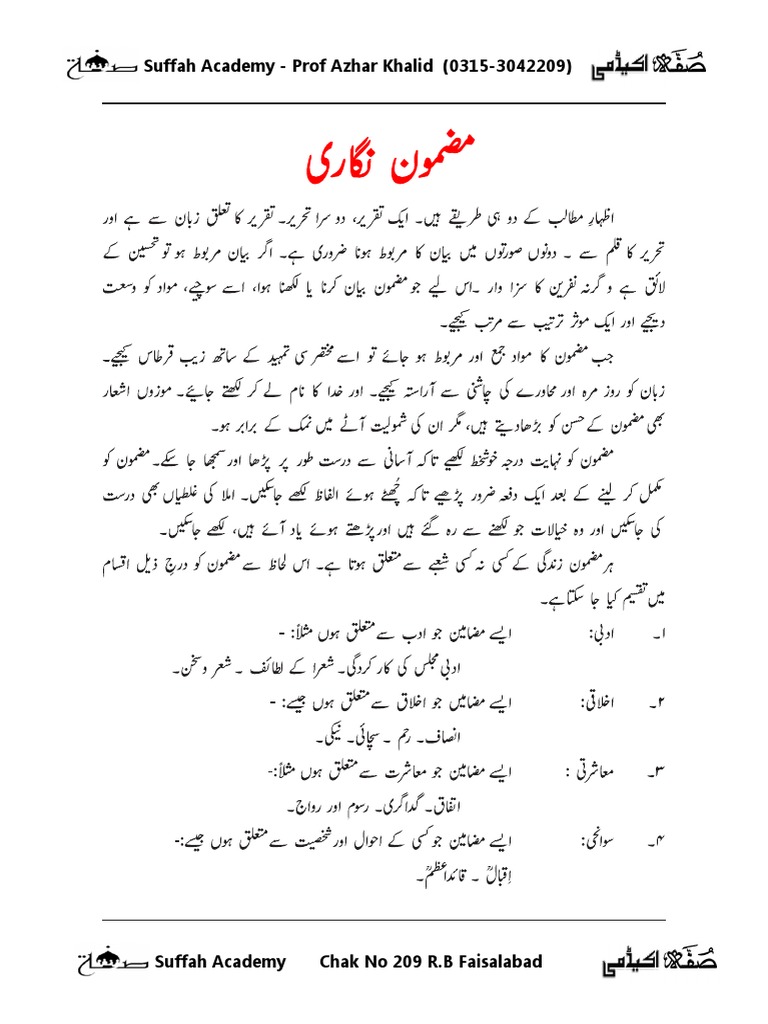 صفہ Suffah Academy - Prof Azhar Khalid (0315-3042209) صُفَّہ اکیڈمی
مضمون نگاری
اظہارِ مطالب کے دو ہی طریقے ہیں۔ ایک تقریر، دو سرا تحریر۔ تقریر کا تعلق زبان سے ہے اور
تحریر کا قلم سے ۔ دونوں صورتوں میں بیان کا مربوط ہونا ضروری ہے۔ اگر بیان مربوط ہو تو تحسین کے
لائق ہے و گرنہ نفرین کا سزا وار ۔اس لیے جو مضمون بیان کرنا یا لکھنا ہوا، اسے سوچیے، مواد کو وسعت
دیجیے اور ایک موثر ترتیب سے مرتب کیجیے۔
جب مضمون کا مواد جمع اور مربوط ہو جائے تو اسے مختصر سی تمہید کے ساتھ زیب قرطاس کیجیے۔
زبان کو روز مرہ اور محاورے کی چاشنی سے آراستہ کیجیے۔ اور خدا کا نام لے کر لکھتے جائیے۔ موزوں اشعار
بھی مضمون کے حسن کو بڑھادیتے ہیں، مگر ان کی شمولیت آٹے میں نمک کے برابر ہو۔
مضمون کو نہایت درجہ خوشخط لکھیے تاکہ آسانی سے درست طور پر پڑھا اور سمجھا جا سکے۔ مضمون کو
مکمل کر لینے کے بعد ایک دفعہ ضرور پڑھیے تاکہ چُھٹے ہوئے الفاظ لکھے جاسکیں۔ املا کی غلطیاں بھی درست
کی جاسکیں اور وہ خیالات جو لکھنے سے رہ گئے ہیں اور پڑھتے ہوئے یاد آئے ہیں، لکھے جاسکیں۔
ہر مضمون زندگی کے کسی نہ کسی شعبے سے متعلق ہوتا ہے۔ اس لحاظ سے مضمون کو درجِ ذیل اقسام
میں تقسیم کیا جا سکتاہے۔
۱۔ ادبی: ایسے مضامین جو ادب سے متعلق ہوں مثلاً: -
ادبی مجلس کی کار کردگی۔ شعرا کے لطائف ۔ شعر و سخن۔
۲۔ اخلاقی: ایسے مضامیں جو اخلاق سے متعلق ہوں جیسے: -
انصاف۔ رحم ۔ سچائی۔ نیکی۔
۳۔ معاشرتی : ایسے مضامین جو معاشرت سے متعلق ہوں مثلاً:-
اتفاق۔ گداگری۔ رسوم اور رواج۔
۴۔ سوانحی: ایسے مضامین جو کسی کے احوال اور شخصیت سے متعلق ہوں جیسے:-
اِقبالؒ ۔ قائداعظمؒ۔
صفہ Suffah Academy Chak No 209 R.B Faisalabad صُفَّہ اکیڈمی